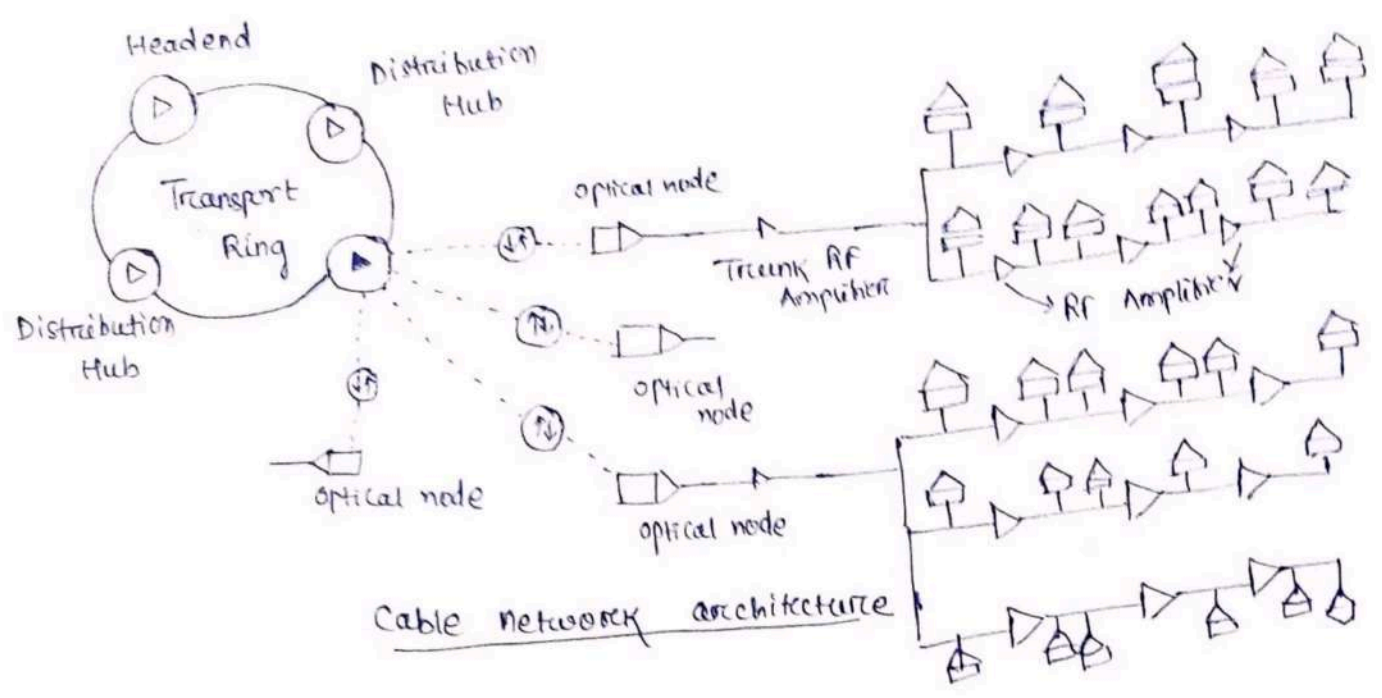 Headend
Distribution
Hub
Transport
Ring
Distribution
Hub
optical node
Trunk RF
Amplifier
RF Amplifier
optical
node
optical node
optical node
Cable network architecture